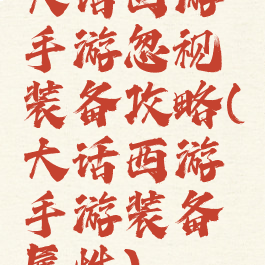 大话西游
手游忽视
装备攻略(
大话西游
手游装备
属性)